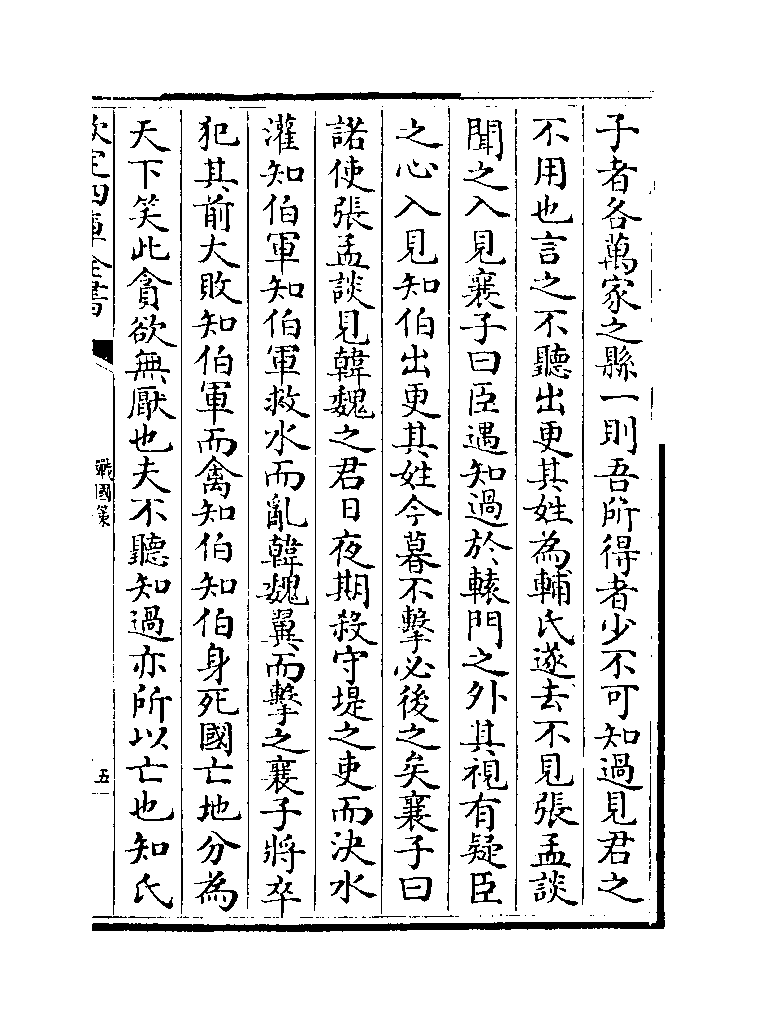 子者各萬家之縣一則吾所得者少不可知過見君之
不用也言之不聽出更其姓為輔氏遂去不見張孟談
聞之入見襄子曰臣遇知過於轅門之外其視有疑臣
之心入見知伯出更其姓今暮不擊必後之矣襄子曰
諾使張孟談見韓魏之君日夜期殺守堤之吏而決水
灌知伯軍知伯軍救水而亂韓魏翼而擊之襄子將卒
犯其前大敗知伯軍而禽知伯知伯身死國亡地分為
天下笑此貪欲無厭也夫不聽知過亦所以亡也知氏
欽定四庫全書
戰國策
五